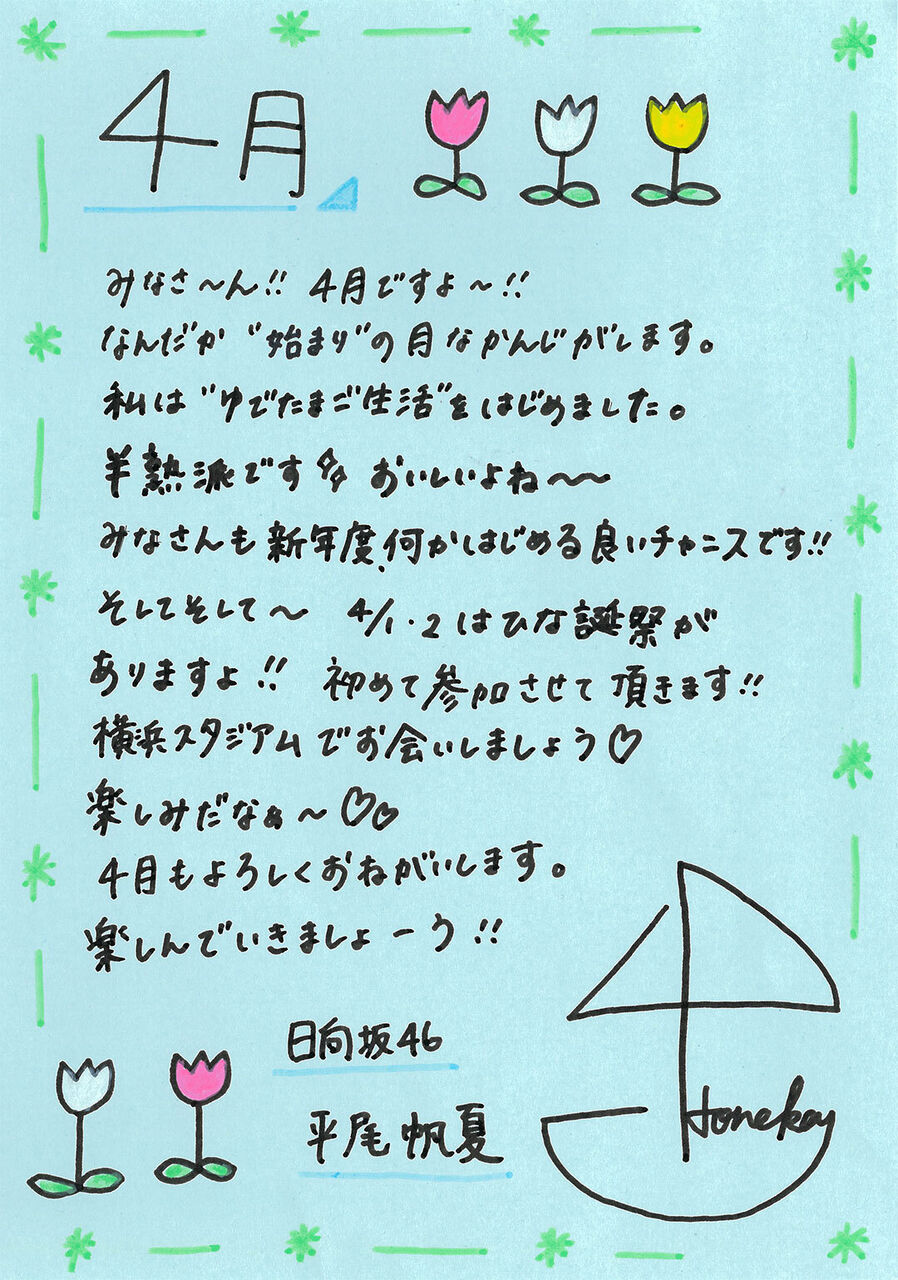 4月
みなさ〜ん!! 4月ですよ〜!!
なんだか"始まり"の月なかんじがします。
私は"ゆでたまご生活"をはじめました。
半熟派です おいしいよね〜〜
みなさんも新年度、何かはじめる良いチャンスです!!
そしてそして〜 4/1・2はひな誕祭が
ありますよ!! 初めて参加させて頂きます!!
横浜スタジアムでお会いしましょう♡
楽しみだなぁ〜♡♡
4月もよろしくおねがいします。
楽しんでいきましょーう!!
日向坂46
平尾帆夏
Honoka